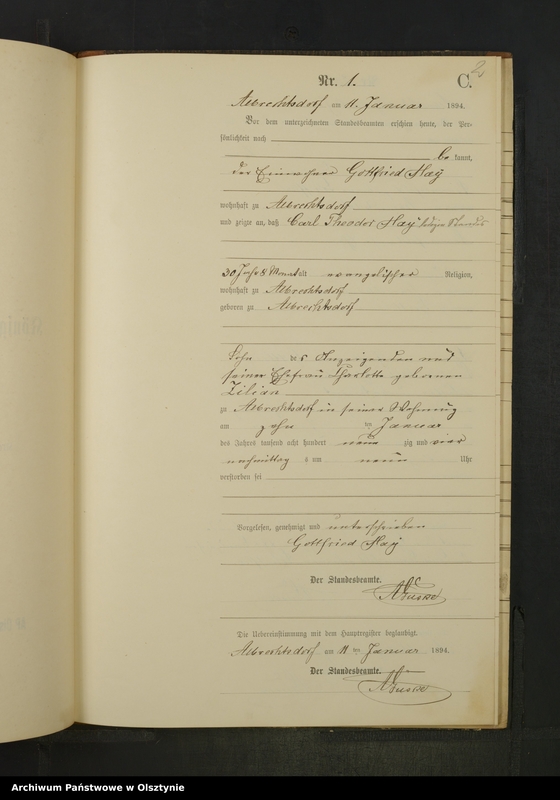 2
Nr. 1. C.
Albrechtsdorf am 11. Januar 1894.
Vor dem unterzeichneten Standesbeamten erschien heute, der Per-
sönlichkeit nach
be kannt,
der Einwohner Gottfried Hay
wohnhaft zu Albrechtsdorf
und zeigte an, daß Carl Theodor Hay ledigen Standes
30 Jahr 8 Monat alt evangelischer Religion,
wohnhaft zu Albrechtsdorf
geboren zu Albrechtsdorf
Sohn des Anzeigenden und
seiner Ehefrau Charlotte geborenen
Zilian
zu Albrechtsdorf in seiner Wohnung
am zehn ten Januar
des Jahres tausend acht hundert neun zig und vier
nachmittag s um neun Uhr
verstorben sei
Vorgelesen, genehmigt und unterschrieben
Gottfried Hay
Der Standesbeamte.
Die Uebereinstimmung mit dem Hauptregister beglaubigt.
Albrechtsdorf am 11 ten Januar 1894.
Der Standesbeamte.
Archiwum Państwowe w Olsztynie